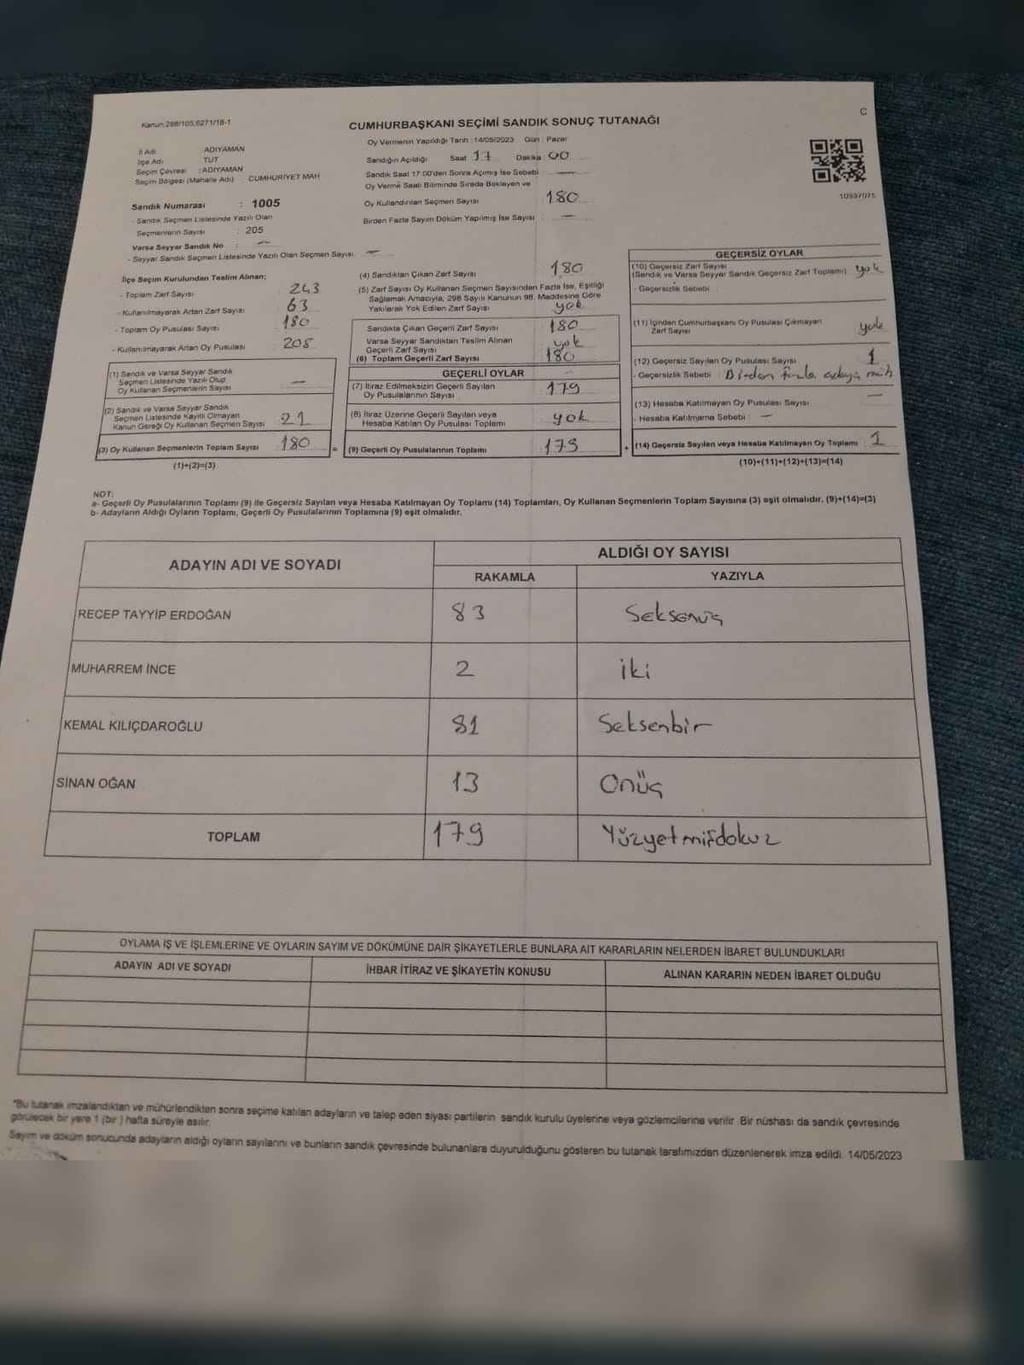 Kanun:298/105;6271/18-1
C
CUMHURBAŞKANI SEÇİMİ SANDIK SONUÇ TUTANAĞI
Oy Vermenin Yapıldığı Tarih :14/05/2023 Gün : Pazar
İl Adı ADIYAMAN
İlçe Adı TUT
Seçim Çevresi : ADIYAMAN
Seçim Bölgesi (Mahalle Adı) CUMHURİYET MAH
Sandığın Açıldığı Saat 17 Dakika 00
Sandık Saat 17.00'den Sonra Açılmış İse Sebebi —
Oy Verme Saati Bitiminde Sırada Bekleyen ve
Oy Kullandırılan Seçmen Sayısı 180
Birden Fazla Sayım Döküm Yapılmış İse Sayısı —
10997/071
Sandık Numarası : 1005
- Sandık Seçmen Listesinde Yazılı Olan
Seçmenlerin Sayısı : 205
Varsa Seyyar Sandık No : —
- Seyyar Sandık Seçmen Listesinde Yazılı Olan Seçmen Sayısı —
İlçe Seçim Kurulundan Teslim Alınan;
- Toplam Zarf Sayısı 243
- Kullanılmayarak Artan Zarf Sayısı 63
- Toplam Oy Pusulası Sayısı 180
- Kullanılmayarak Artan Oy Pusulası 205
(1) Sandık ve Varsa Seyyar Sandık
Seçmen Listesinde Yazılı Olup
Oy Kullanan Seçmenlerin Sayısı —
(2) Sandık ve Varsa Seyyar Sandık
Seçmen Listesinde Kayıtlı Olmayan
Kanun Gereği Oy Kullanan Seçmen Sayısı 21
(3) Oy Kullanan Seçmenlerin Toplam Sayısı 180
(1)+(2)=(3)
(4) Sandıktan Çıkan Zarf Sayısı 180
(5) Zarf Sayısı Oy Kullanan Seçmen Sayısından Fazla İse, Eşitliği
Sağlamak Amacıyla, 298 Sayılı Kanunun 98. Maddesine Göre
Yakılarak Yok Edilen Zarf Sayısı yok
Sandıkta Çıkan Geçerli Zarf Sayısı 180
Varsa Seyyar Sandıktan Teslim Alınan
Geçerli Zarf Sayısı yok
(6) Toplam Geçerli Zarf Sayısı 180
GEÇERLİ OYLAR
(7) İtiraz Edilmeksizin Geçerli Sayılan
Oy Pusulalarının Sayısı 179
(8) İtiraz Üzerine Geçerli Sayılan veya
Hesaba Katılan Oy Pusulası Toplamı yok
= (9) Geçerli Oy Pusulalarının Toplamı 179 +
GEÇERSİZ OYLAR
(10) Geçersiz Zarf Sayısı
(Sandık ve Varsa Seyyar Sandık Geçersiz Zarf Toplamı) yok
- Geçersizlik Sebebi :
(11) İçinden Cumhurbaşkanı Oy Pusulası Çıkmayan
Zarf Sayısı yok
(12) Geçersiz Sayılan Oy Pusulası Sayısı 1
- Geçersizlik Sebebi : Birden fazla adaya
(13) Hesaba Katılmayan Oy Pusulası Sayısı —
- Hesaba Katılmama Sebebi : —
(14) Geçersiz Sayılan veya Hesaba Katılmayan Oy Toplamı 1
(10)+(11)+(12)+(13)=(14)
NOT:
a- Geçerli Oy Pusulalarının Toplamı (9) ile Geçersiz Sayılan veya Hesaba Katılmayan Oy Toplamı (14) Toplamları, Oy Kullanan Seçmenlerin Toplam Sayısına (3) eşit olmalıdır. (9)+(14)=(3)
b- Adayların Aldığı Oyların Toplamı, Geçerli Oy Pusulalarının Toplamına (9) eşit olmalıdır.
ADAYIN ADI VE SOYADI
ALDIĞI OY SAYISI
RAKAMLA YAZIYLA
RECEP TAYYİP ERDOĞAN 83 Seksenüç
MUHARREM İNCE 2 iki
KEMAL KILIÇDAROĞLU 81 Seksenbir
SİNAN OĞAN 13 Onüç
TOPLAM 179 Yüzyetmişdokuz
OYLAMA İŞ VE İŞLEMLERİNE VE OYLARIN SAYIM VE DÖKÜMÜNE DAİR ŞİKAYETLERLE BUNLARA AİT KARARLARIN NELERDEN İBARET BULUNDUKLARI
ADAYIN ADI VE SOYADI İHBAR İTİRAZ VE ŞİKAYETİN KONUSU ALINAN KARARIN NEDEN İBARET OLDUĞU
*Bu tutanak imzalandıktan ve mühürlendikten sonra seçime katılan adayların ve talep eden siyasi partilerin sandık kurulu üyelerine veya gözlemcilerine verilir. Bir nüshası da sandık çevresinde
görülecek bir yere 1 (bir ) hafta süreyle asılır.
Sayım ve döküm sonucunda adayların aldığı oyların sayılarını ve bunların sandık çevresinde bulunanlara duyurulduğunu gösteren bu tutanak tarafımızdan düzenlenerek imza edildi. 14/05/2023